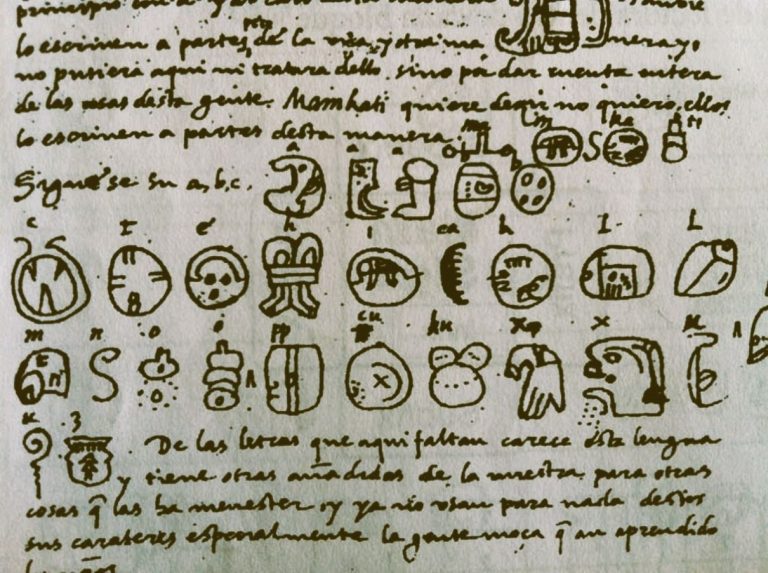 principio con a y al cabo desta manera
lo escriven a partes de la una y otra ma nera, yo
no pusiera aqui ni tratara dello sino por dar cuenta entera
de las cosas desta gente. Mainkati quiere dezir no quiero, ellos
lo escriven a partes desta manera ma i n ka ti
Siguese su a, b, c. a a a b b
c t e h i ca k l l
m n o o pp cu ku x x u
u z De las letras que aqui faltan carece esta lengua
y tiene otras añadidas de la nuestra para otras
cosas q̃ las ha menester y ya no usan para nada destos
sus carateres especialmente la gente moça q̃ an aprendido